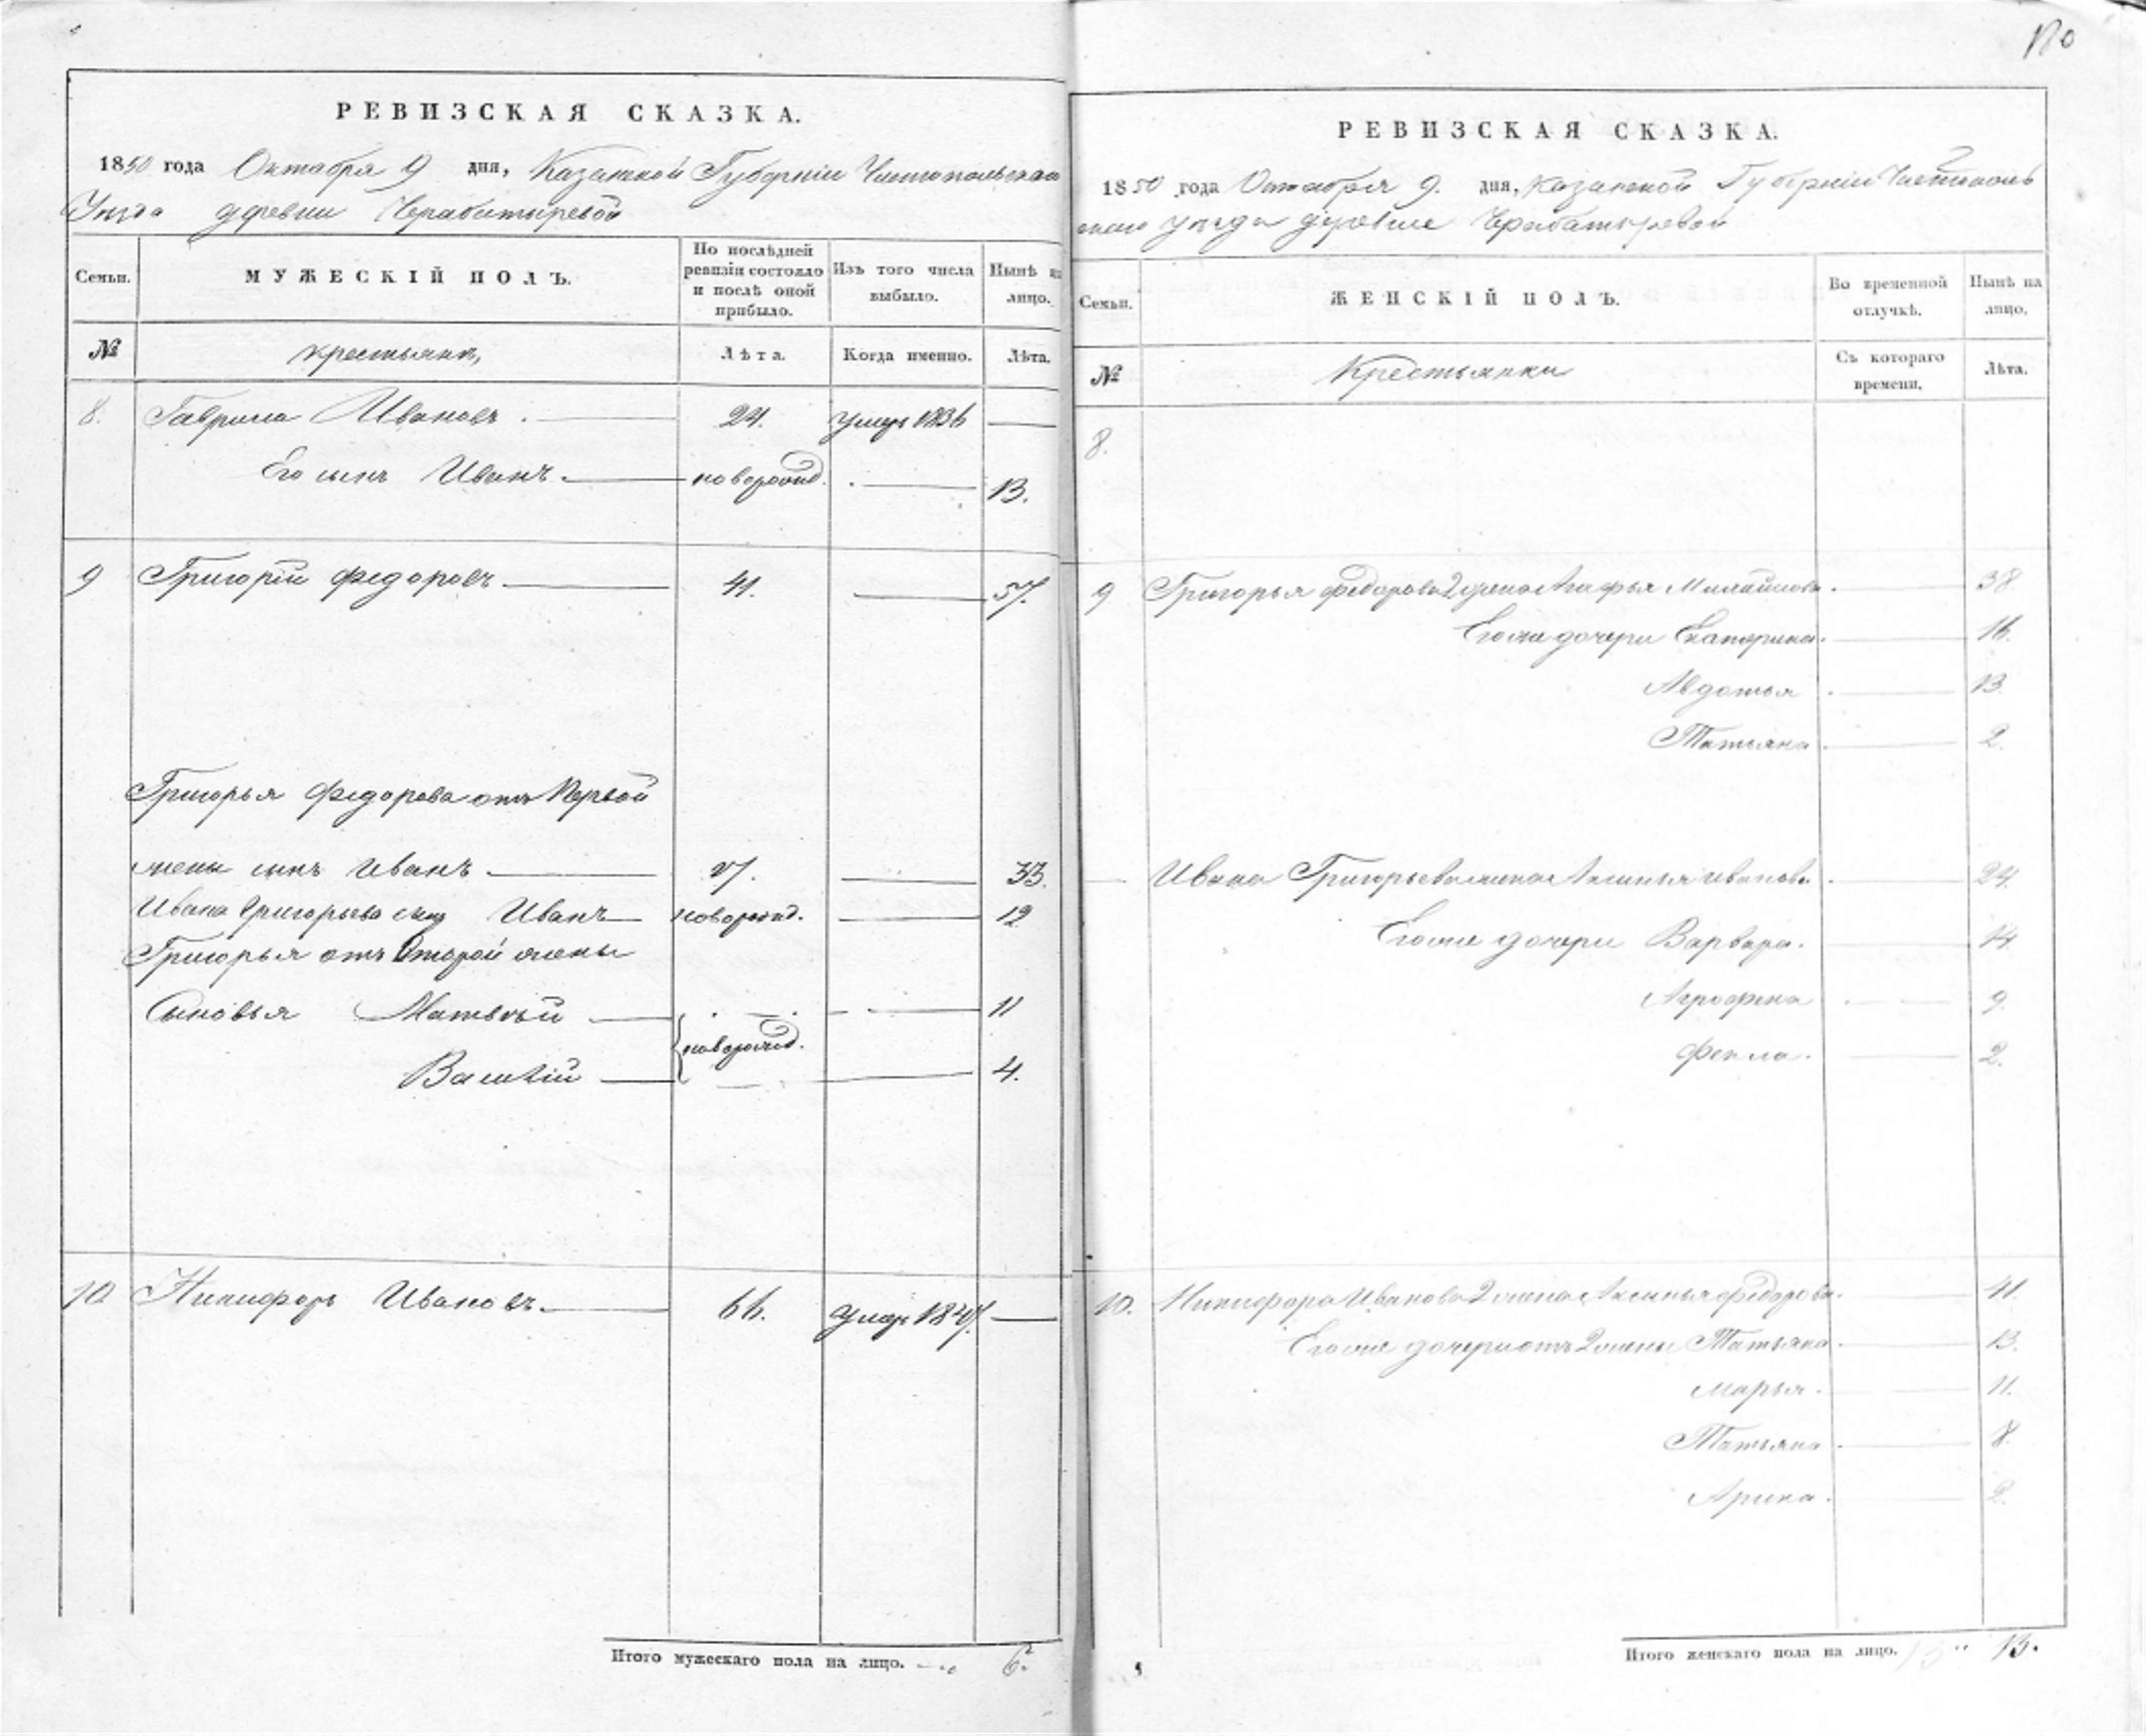 РЕВИЗСКАЯ СКАЗКА.
1850 года Октября 9 дня, Казанской Губерніи Чистопольскаго
Уѣзда деревни Черабатыревой
Семьи.
МУЖЕСКІЙ ПОЛЪ.
По послѣдней ревизіи состояло и послѣ оной прибыло.
Изъ того числа выбыло.
Нынѣ на лицо.
№ крестьянъ, Лѣта. Когда именно. Лѣта.
8. Гаврила Ивановъ. 24. умеръ 1836
Его сынъ Иванъ. новорожд. 13.
9 Григорій Федоровъ 41. 57.
Григорья Федорова отъ Первой
жены сынъ Иванъ 17. 33.
Ивана Григорьева сынъ Иванъ новорожд. 12
Григорья отъ Второй жены
Сыновья Матвѣй 11
новорожд.
Василій 4.
10 Никифоръ Ивановъ. 66. умеръ 1847.
Итого мужескаго пола на лицо. 6.
РЕВИЗСКАЯ СКАЗКА.
1850 года Октября 9. дня, Казанской Губерніи Чистополь
скаго уѣзда деревни Черабатыревой
Семьи.
ЖЕНСКІЙ ПОЛЪ.
Во временной отлучкѣ.
Нынѣ на лицо.
№ Крестьянки Съ котораго времени. Лѣта.
8.
9 Григорья Федорова 2 жена Агафья 38
Его же дочери Екатерина. 16.
Авдотья 13
Татьяна 2.
Ивана Григорьева жена Аксинья Иванова 34
Его же дочери Варвара. 14.
Агрофена 9.
Фекла. 2.
10. Никифора Иванова 2 жена Аксинья Федорова. 41.
Его же дочери отъ 2 жены Татьяна 13.
Марья. 11.
Татьяна 8.
Арина. 2.
Итого женскаго пола на лицо. 13.